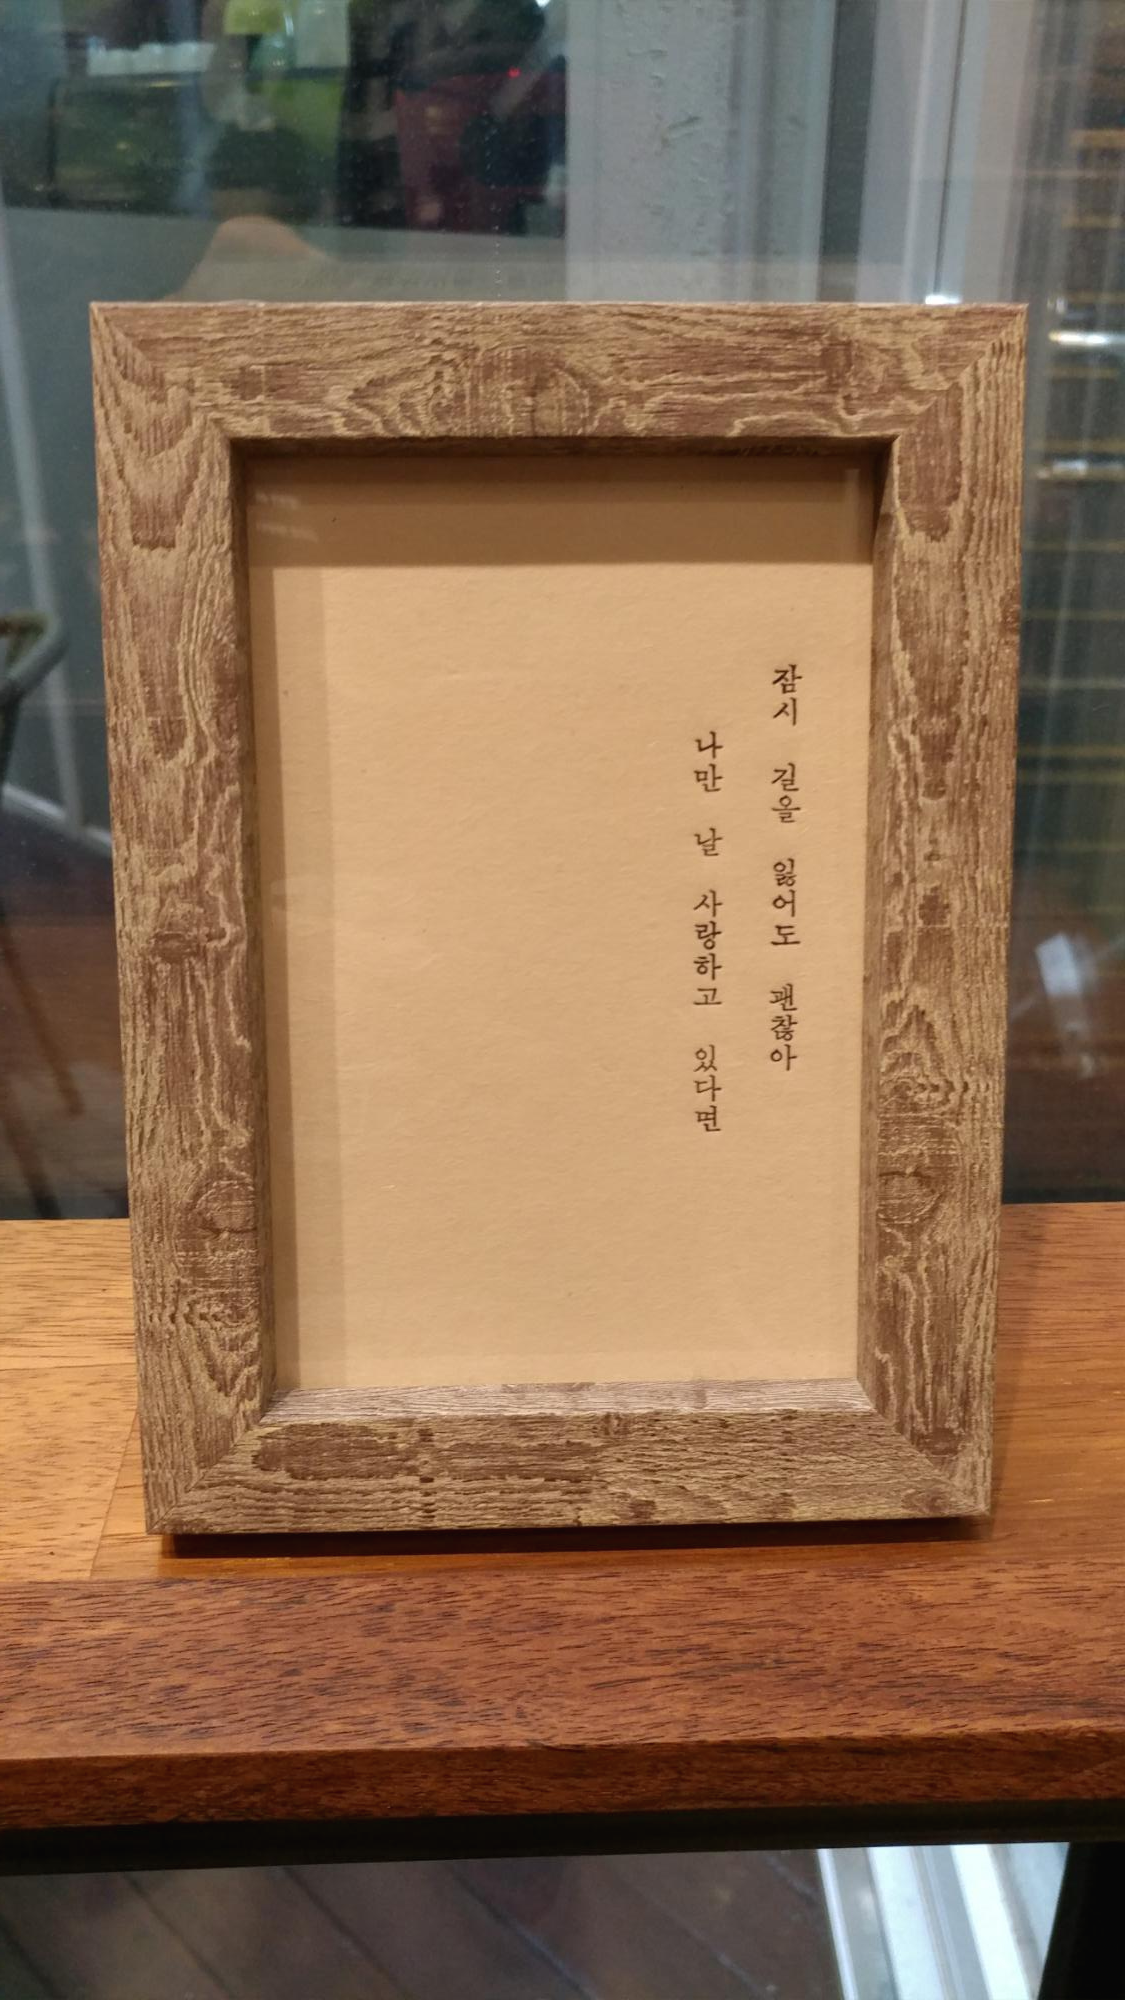 잠시 길을 잃어도 괜찮아
나만 날 사랑하고 있다면